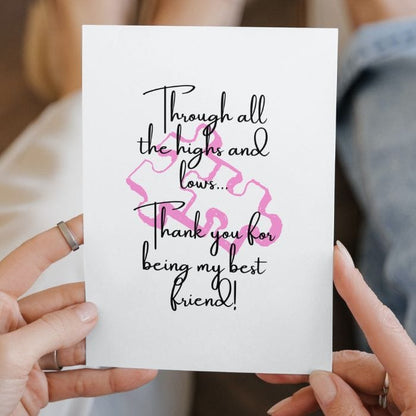 Through all
the highs and
lows...
Thank you for
being my best
friend!